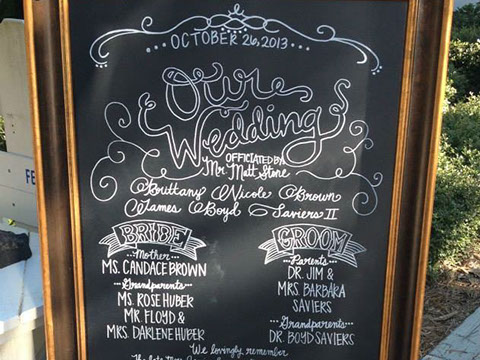 OCTOBER 26, 2013
Our
Wedding
OFFICIATED BY
Mr. Matt Stone
Brittany Nicole Brown
James Boyd Saviers II
BRIDE
Mother
MS. CANDACE BROWN
Grandparents
MS. ROSE HUBER
MR. FLOYD &
MRS. DARLENE HUBER
GROOM
Parents
DR. JIM &
MRS. BARBARA
SAVIERS
Grandparents
DR. BOYD SAVIERS
We lovingly remember